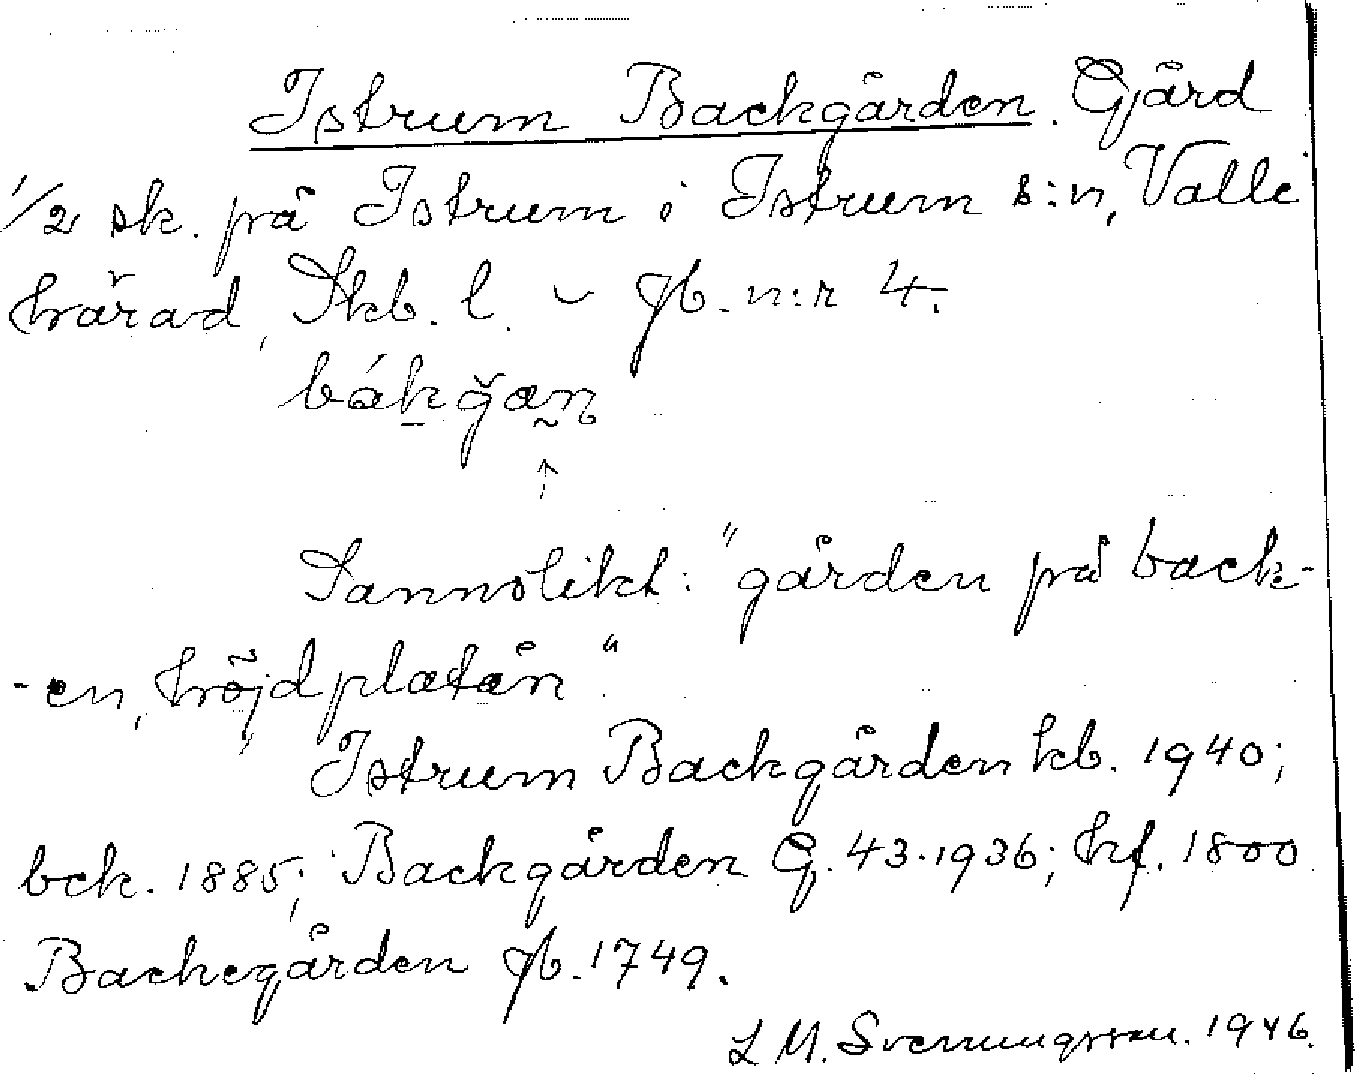 Istrum Backgården. Gård
1/2 sk. på Istrum i Istrum s:n, Valle
härad, Skb. l. – jb. n:r 4.
bákǧan
↑
Sannolikt: "gården på back-
-en, höjdplatån".
Istrum Backgården kb. 1940;
bck. 1885; Backgården G. 43.1936; hf. 1800
Backegården jb. 1749.
L M. Svenungsson. 1946.